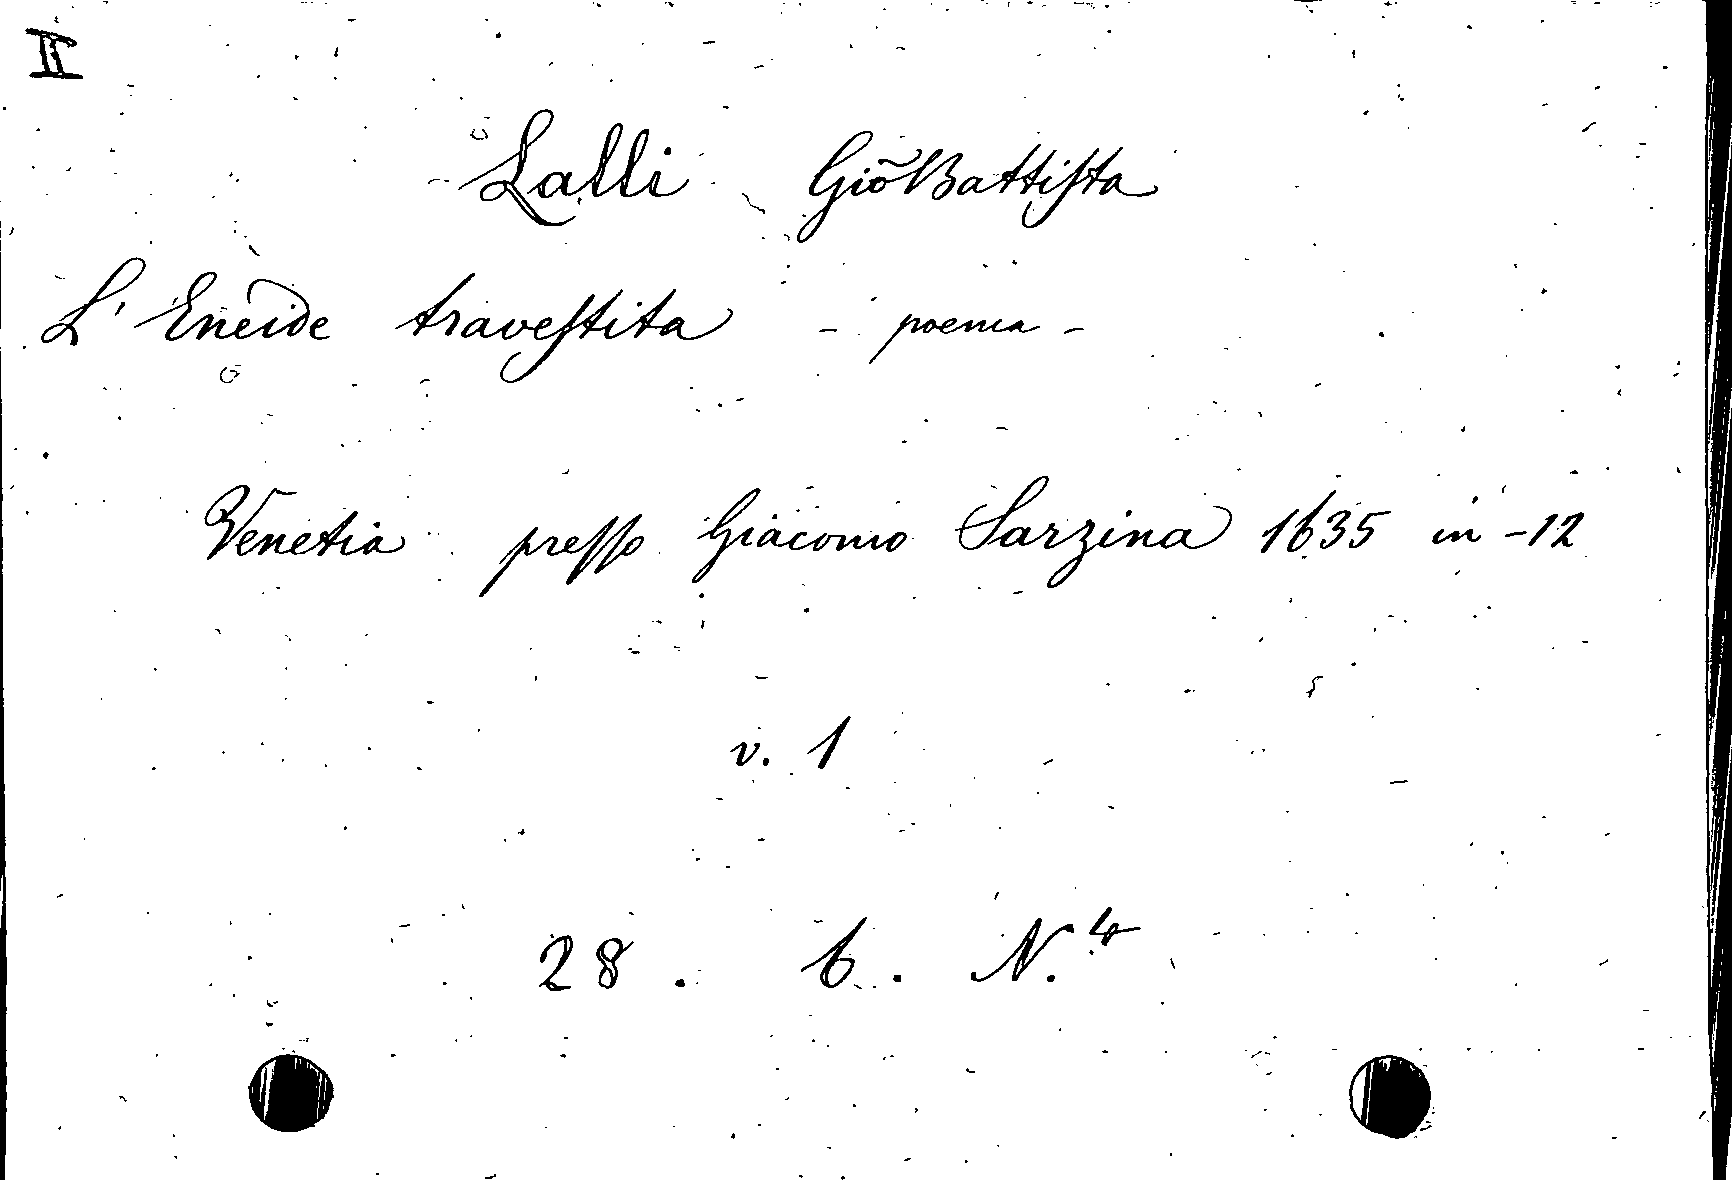 II
Lalli Giõ Battista
L'Eneide travestita - poema -
Venetia presso Giacomo Sarzina 1635 in-12
v. 1
28. 6. N. 4